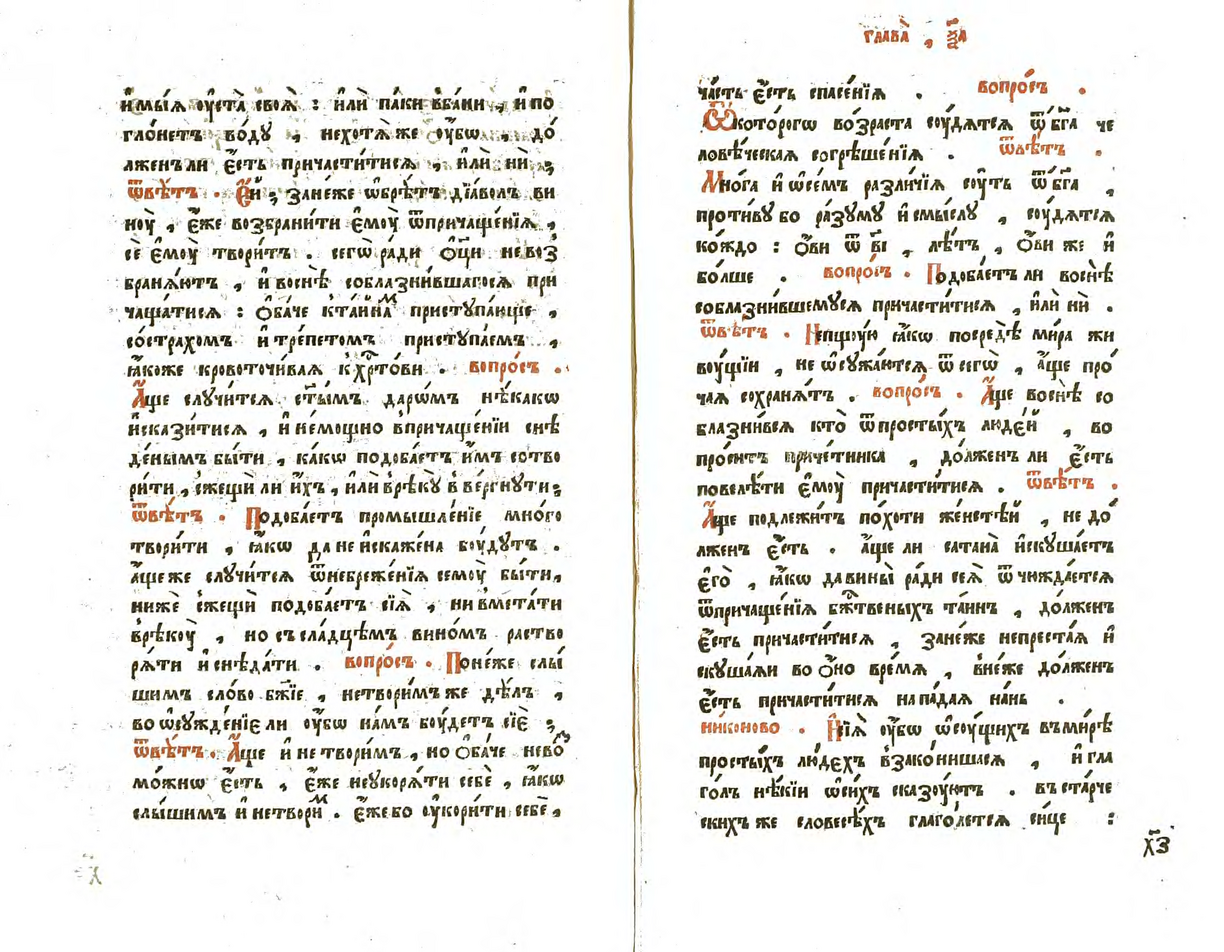 и҆мы́ѧ ᲂу҆ста̀ своѧ̀ : и҆лѝ па́ки вба́ни , и҆ по
гло́нетъ во́дꙋ , нехотѧ́ же ᲂу҆́бѡ , до́
лженъ ли є҆́сть причасти́тисѧ , и҆лѝ нѝ ;
ѿвѣ́тъ . Є҆́й ; зане́же ѡ҆брѣ́тъ дїа́волъ ви
нᲂу̀ , є҆́же возбрани́ти є҆мᲂу̀ ѿпричаще́нїѧ ,
сѐ є҆мᲂу̀ твори́тъ . сегѡ̀ ра́ди ѻ҆ц҃и невоз
бранѧ́ютъ , и҆ воснѣ̀ соблазни́вшагосѧ при
чаща́тисѧ : ѻ҆ба́че кта́йнаⷨ пристꙋпа́юще ,
состра́хомъ и҆ тре́петомъ пристꙋпа́емъ ,
ꙗ҆́коже кровоточи́ваѧ к хрⷭ҇то́ви . вопро́съ .
А҆́ще слꙋчи́тсѧ ст҃ы́мъ дарѡ́мъ нѣ́какѡ
и҆сказитисѧ , и҆ немо́щно впричаще́нїи снѣ
де́нымъ бы́ти , ка́кѡ подоба́етъ и҆̀мъ сотво
ри́ти , сжещѝ ли и҆̀хъ , и҆лѝ врѣ́кꙋ вве́ргнꙋти ;
ѿвѣ́тъ . Подоба́етъ промышле́нїе мно́го
твори́ти , ꙗ҆́кѡ да не и҆скаже́на бᲂу́дꙋтъ .
а҆́ще же слꙋчи́тсѧ ѿнебреже́нїѧ семᲂу̀ бы́ти ,
нижѐ сжещѝ подоба́етъ сїѧ̀ , ни вмета́ти
врѣ́кᲂу̀ , но съ сла́дцѣмъ вино́мъ раство
рѧ́ти и҆ снѣда́ти . вопро́съ . Поне́же слы́
шимъ сло́во бж҃їе , нетвори́мъ же дѣ́лъ ,
во ѡ҆сꙋжде́нїе ли ᲂу҆́бѡ на́мъ бᲂу́детъ сїѐ ;
ѿвѣ́тъ . А҆́ще и҆ не твори́мъ , но ѻ҆ба́че невоз
мо́жнѡ є҆́сть , є҆́же неукорѧ́ти себѐ , ꙗ҆́кѡ
слы́шимъ и҆ нетвориⷨ . є҆́же бо ᲂу҆кори́ти себѐ ,
х҃
глава̀ ,
ча́сть є҆́сть спасе́нїѧ . вопро́съ .
Ѿкото́рогѡ во́зраста сᲂу́дѧтсѧ ѿ бг҃а че
ловѣ́ческаѧ согрѣше́нїѧ . ѿвѣ́тъ .
Мно́га и҆ ѡ҆ се́мъ разли́чїѧ сᲂу́ть ѿ бг҃а ,
проти́вꙋ бо ра́зꙋмꙋ и҆ смы́слꙋ , сᲂу́дѧтсѧ
ко́ждо : ѻ҆́ви ѿ в҃і , лѣ́тъ , ѻ҆́ви же и҆
бо́лше . вопро́съ . Подоба́етъ ли воснѣ̀
соблазни́вшемꙋсѧ причасти́тисѧ , и҆лѝ нѝ .
ѿвѣ́тъ . Непщꙋ́ю ꙗ҆́кѡ посредѣ̀ ми́ра жи
вᲂу́щїи , не ѡ҆сꙋжа́ютсѧ ѿ сегѡ̀ , а҆́ще про́
чаѧ сохранѧ́тъ . вопро́съ . А҆́ще воснѣ̀ со
блазни́всѧ кто̀ ѿпросты́хъ люде́й , во
про́ситъ причетника , до́лженъ ли є҆́сть
повелѣ́ти є҆мᲂу̀ причасти́тисѧ . ѿвѣ́тъ .
А҆́ще подлежи́тъ по́хоти же́нстѣй , не до́
лженъ є҆́сть . а҆́ще ли сатана̀ и҆скꙋша́етъ
є҆го̀ , ꙗ҆́кѡ да вины̀ ра́ди сеѧ̀ ѿчꙋжда́етсѧ
ѿпричаще́нїѧ бж҃твеныхъ та́инъ , до́лженъ
є҆́сть причасти́тисѧ , зане́же непреста́ѧ и҆
скꙋша́ѧи во ѻ҆́но вре́мѧ , вне́же до́лженъ
є҆́сть причасти́тисѧ напа́даѧ на́нь .
никоново . Нїѧ̀ ᲂу҆́бѡ ѡ҆сᲂу́щихъ въмі́рѣ
просты́хъ лю́дехъ взако́нишасѧ , и҆ гла
го́лъ нѣ́кїи ѡ҆си́хъ сказᲂу́ютъ . въ ста́рче
скихъ же словесѣ́хъ глаго́летсѧ си́це :
х҃з